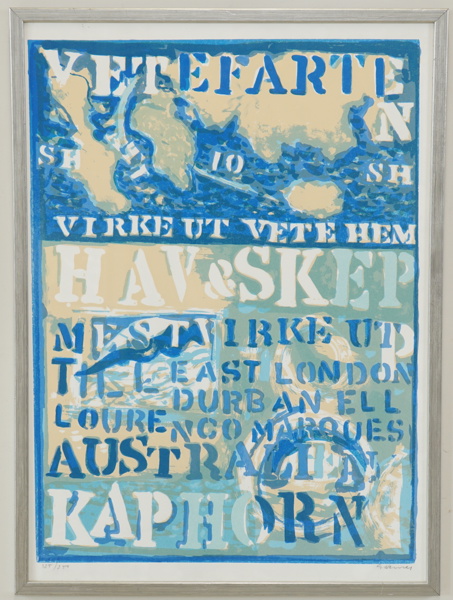 VETEFARTE
N
SH 10 SH
VIRKE UT VETE HEM
HAV & SKEP
P
MEST VIRKE UT
TILL EAST LONDON
DURBAN ELL
LOURENCO MARQUES
AUSTRALIEN
KAPHORN